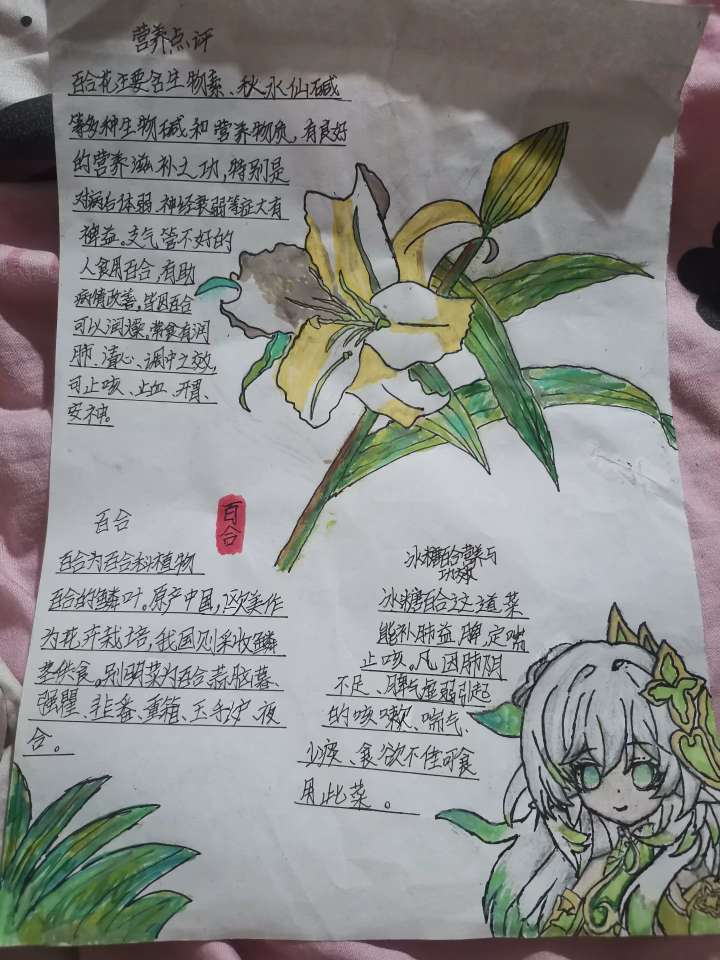 营养点评
百合花主要含生物素、秋水仙碱
等多种生物碱和营养物质,有良好
的营养滋补之功,特别是
对病后体弱、神经衰弱等症大有
裨益。支气管不好的
人食用百合,有助
病情改善,皆因百合
可以润燥。常食有润
肺、清心、调中之效,
可止咳、止血、开胃、
安神。
百合
百合
百合为百合科植物
百合的鳞叶。原产中国,欧美作
为花卉栽培,我国则采收鳞
茎供食。别明菜为百合蒜脑薯、
强瞿、韭番、重箱、玉手炉、夜
合。
冰糖百合营养与
功效
冰糖百合这道菜
能补肺益脾,定喘
止咳。凡因肺阴
不足、脾气虚弱引起
的咳嗽、喘气、
少痰、食欲不佳可食
用此菜。